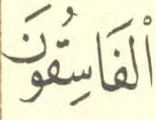 اْلفَاسِقُونَ